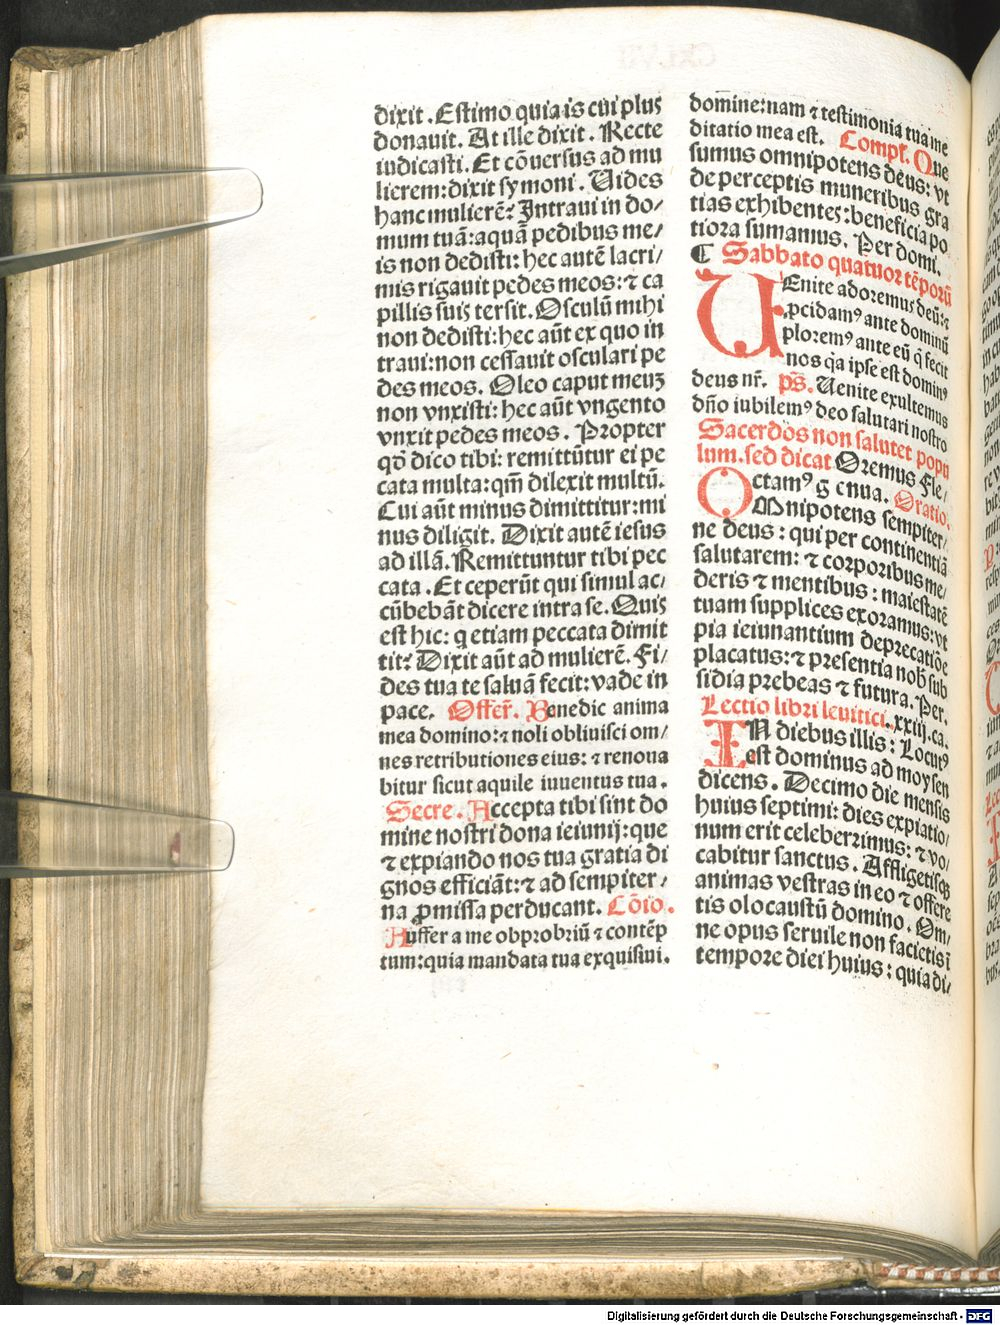 dixit. Estimo quia is cui plus
donauit. At ille dixit. Recte
iudicasti. Et cōuersus ad mu
lierem: dixit symoni. Uides
hanc mulierē? Intraui in do/
mum tuā: aquā pedibus me/
is non dedisti: hec autē lacri/
mis rigauit pedes meos: ⁊ ca
pillis suis tersit. Osculū mihi
non dedisti: hec aūt ex quo in
traui: non cessauit osculari pe
des meos. Oleo caput meuꝫ
non vnxisti: hec aūt vngento
vnxit pedes meos. Propter
qđ dico tibi: remittūtur ei pe
cata multa: qm̄ dilexit multū.
Cui aūt minus dimittitur: mi
nus diligit. Dixit autē iesus
ad illā. Remittuntur tibi pec
cata. Et ceperūt qui simul ac/
cūbebāt dicere intra se. Quis
est hic: q etiam peccata dimit
tit? Dixit aūt ad mulierē. Fi/
des tua te saluā fecit: vade in
pace. Offer̄. Benedic anima
mea domino: ⁊ noli obliuisci om/
nes retributiones eius: ⁊ renoua
bitur sicut aquile iuuentus tua.
Secre. Accepta tibi sint do
mine nostri dona ieiunij: que
⁊ expiando nos tua gratia di
gnos efficiāt: ⁊ ad sempiter/
na ꝓmissa perducant. Cōio.
Auffer a me obprobriū ⁊ contēp
tum: quia mandata tua exquisiui.
domine: nam ⁊ testimonia tua me
ditatio mea est. Compl̄. Que
sumus omnipotens deus: vt
de perceptis muneribus gra
tias exhibentes: beneficia po
tiora sumamus. Per domi.
¶ Sabbato quatuor tēporū
UEnite adoremus deū: ⁊
ꝓcidamꝰ ante dominū
ploremꝰ ante eū q̄ fecit
nos q̇a ipse est dominꝰ
deus nr̄. ps̄. Uenite exultemus
dn̄o iubilemꝰ deo salutari nostro
Sacerdos non salutet popu
lum. sed dicat Oremus Fle/
ctamꝰ g enua. Oratio.
OMnipotens sempiter/
ne deus: qui per continentiā
salutarem: ⁊ corporibus me/
deris ⁊ mentibus: maiestatē
tuam supplices exoramus: vt
pia ieiunantium deprecatiōe
placatus: ⁊ presentia nob̄ sub
sidia prebeas ⁊ futura. Per.
Lectio libri leuitici. xxiij. ca.
IN diebus illis: Locutꝰ
est dominus ad moysen
dicens. Decimo die mensis
huius septimi: dies expiatio/
num erit celeberrimus: ⁊ vo/
cabitur sanctus. Affligetisqꝫ
animas vestras in eo ⁊ offere
tis olocaustū domino. Om/
ne opus seruile non facietis ī
tempore diei huius: quia di/
Digitalisierung gefördert durch die Deutsche Forschungsgemeinschaft - DFG